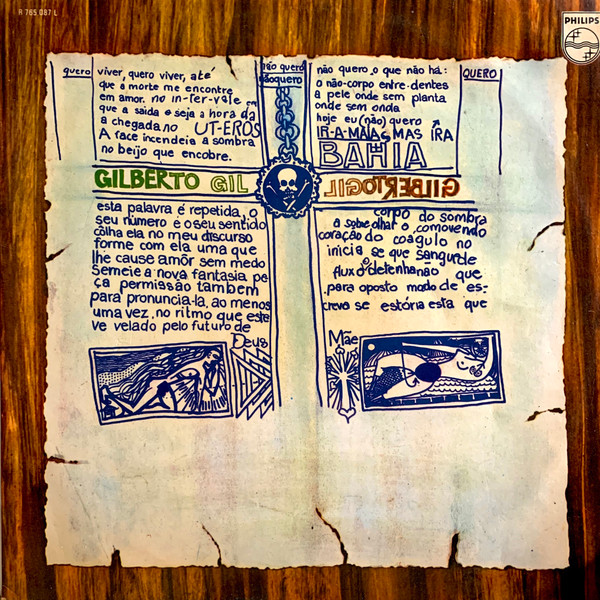 R 765 087 L
PHILIPS
quero
viver, quero viver, até
que a morte me encontre
em amor. no in-ter-vale em
que a saida e seja a hora da
a chegada no UT-EROS
A face incendeia a sombra
no beijo que encobre.
não quero
nãoquero
não quero o que não há:
o não-corpo entre-dentes
a pele onde sem planta
onde sem onda
hoje eu (não) quero
IR-A-MAIAS MAS IRA
BAHIA
QUERO
GILBERTO GIL
GILBERTOGIL
esta palavra é repetida, o
seu número é o seu sentido
côlha ela no meu discurso
forme com ela uma que
lhe cause amôr sem medo
Semeie a nova fantasia pe
ça permissão também
para pronuncia-la, ao menos
uma vez, no ritmo que este
ve velado pelo futuro de
Deus
corpo do sombra
a sobe olhar o comovendo
coração do coágulo no
inicia se que sangue de
fluxo detenha não que
para oposto modo de es-
creva se estória esta que
Mãe